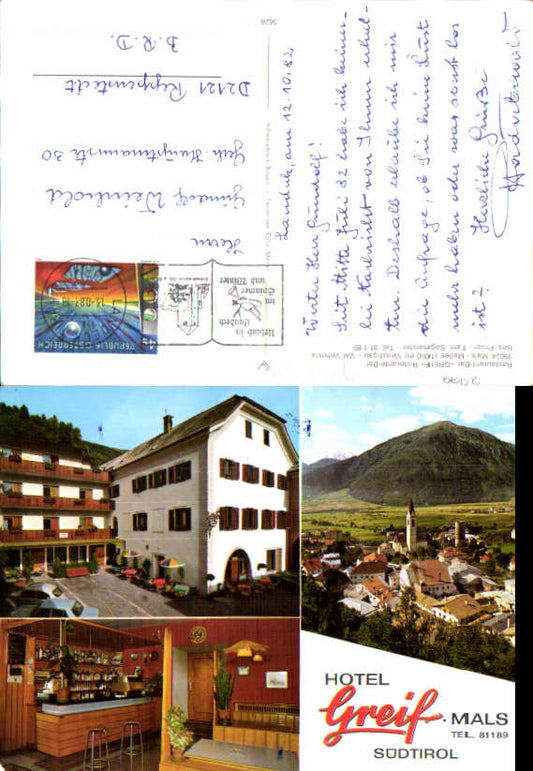 Landeck, am 12.10.82
Werter Herr Gundolf!
Seit Mitte Juli 82 habe ich keiner-
lei Nachricht von Ihnen erhal-
ten. Deshalb erlaube ich mir
die Anfrage, ob Sie keine Lust
mehr haben oder was sonst los
ist?
Herzliche Grüße
Herrn
Gundolf
Gerh. Hauptmannstr. 30
D2121 Reppenstedt
B.R.D.
REPUBLIK ÖSTERREICH
Urlaub in
Landeck
im
Sommer
und Winter
Restaurant-Bar -GREIF- Ristorante-Bar
39024 Mals - Malles (1050 m) Vinschgau - Val Venosta
Bes. Propr.: Fam. Sagmeister - Tel. 81 1 89
HOTEL
Greif · MALS
TEL. 81189
SÜDTIROL